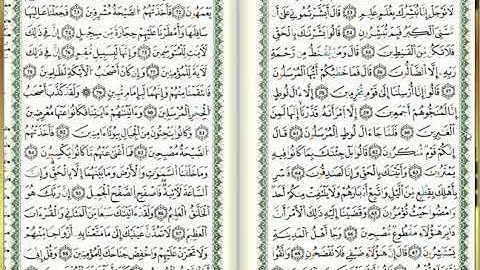 لَا تَوْجَلْ إِنَّا نُبَشِّرُكَ بِغُلَٰمٍ عَلِيمٍ ٥٣ قَالَ أَبَشَّرْتُمُونِى عَلَىٰٓ أَن
مَّسَّنِىَ ٱلْكِبَرُ فَبِمَ تُبَشِّرُونَ ٥٤ قَالُوا۟ بَشَّرْنَٰكَ بِٱلْحَقِّ
فَلَا تَكُن مِّنَ ٱلْقَٰنِطِينَ ٥٥ قَالَ وَمَن يَقْنَطُ مِن رَّحْمَةِ
رَبِّهِۦٓ إِلَّا ٱلضَّآلُّونَ ٥٦ قَالَ فَمَا خَطْبُكُمْ أَيُّهَا ٱلْمُرْسَلُونَ ٥٧
قَالُوٓا۟ إِنَّآ أُرْسِلْنَآ إِلَىٰ قَوْمٍ مُّجْرِمِينَ ٥٨ إِلَّآ ءَالَ لُوطٍ
إِنَّا لَمُنَجُّوهُمْ أَجْمَعِينَ ٥٩ إِلَّا ٱمْرَأَتَهُۥ قَدَّرْنَآ إِنَّهَا لَمِنَ
ٱلْغَٰبِرِينَ ٦٠ فَلَمَّا جَآءَ ءَالَ لُوطٍ ٱلْمُرْسَلُونَ ٦١ قَالَ
إِنَّكُمْ قَوْمٌ مُّنكَرُونَ ٦٢ قَالُوا۟ بَلْ جِئْنَٰكَ بِمَا كَانُوا۟ فِيهِ
يَمْتَرُونَ ٦٣ وَأَتَيْنَٰكَ بِٱلْحَقِّ وَإِنَّا لَصَٰدِقُونَ ٦٤ فَأَسْرِ
بِأَهْلِكَ بِقِطْعٍ مِّنَ ٱلَّيْلِ وَٱتَّبِعْ أَدْبَٰرَهُمْ وَلَا يَلْتَفِتْ مِنكُمْ أَحَدٌ
وَٱمْضُوا۟ حَيْثُ تُؤْمَرُونَ ٦٥ وَقَضَيْنَآ إِلَيْهِ ذَٰلِكَ ٱلْأَمْرَ أَنَّ
دَابِرَ هَٰٓؤُلَآءِ مَقْطُوعٌ مُّصْبِحِينَ ٦٦ وَجَآءَ أَهْلُ ٱلْمَدِينَةِ
يَسْتَبْشِرُونَ ٦٧ قَالَ إِنَّ هَٰٓؤُلَآءِ ضَيْفِى فَلَا تَفْضَحُونِ ٦٨ وَٱتَّقُوا۟
يَعْمَهُونَ ٧٢ فَأَخَذَتْهُمُ ٱلصَّيْحَةُ مُشْرِقِينَ ٧٣ فَجَعَلْنَا عَٰلِيَهَا
سَافِلَهَا وَأَمْطَرْنَا عَلَيْهِمْ حِجَارَةً مِّن سِجِّيلٍ ٧٤ إِنَّ فِى ذَٰلِكَ
لَءَايَٰتٍ لِّلْمُتَوَسِّمِينَ ٧٥ وَإِنَّهَا لَبِسَبِيلٍ مُّقِيمٍ ٧٦ إِنَّ فِى ذَٰلِكَ
لَءَايَةً لِّلْمُؤْمِنِينَ ٧٧ وَإِن كَانَ أَصْحَٰبُ ٱلْأَيْكَةِ لَظَٰلِمِينَ ٧٨
فَٱنتَقَمْنَا مِنْهُمْ وَإِنَّهُمَا لَبِإِمَامٍ مُّبِينٍ ٧٩ وَلَقَدْ كَذَّبَ أَصْحَٰبُ
ٱلْحِجْرِ ٱلْمُرْسَلِينَ ٨٠ وَءَاتَيْنَٰهُمْ ءَايَٰتِنَا فَكَانُوا۟ عَنْهَا مُعْرِضِينَ
٨١ وَكَانُوا۟ يَنْحِتُونَ مِنَ ٱلْجِبَالِ بُيُوتًا ءَامِنِينَ ٨٢ فَأَخَذَتْهُمُ
ٱلصَّيْحَةُ مُصْبِحِينَ ٨٣ فَمَآ أَغْنَىٰ عَنْهُم مَّا كَانُوا۟ يَكْسِبُونَ ٨٤
وَمَا خَلَقْنَا ٱلسَّمَٰوَٰتِ وَٱلْأَرْضَ وَمَا بَيْنَهُمَآ إِلَّا بِٱلْحَقِّ وَإِنَّ
ٱلسَّاعَةَ لَءَاتِيَةٌ فَٱصْفَحِ ٱلصَّفْحَ ٱلْجَمِيلَ ٨٥ إِنَّ رَبَّكَ هُوَ
ٱلْخَلَّٰقُ ٱلْعَلِيمُ ٨٦ وَلَقَدْ ءَاتَيْنَٰكَ سَبْعًا مِّنَ ٱلْمَثَانِى وَٱلْقُرْءَانَ
ٱلْعَظِيمَ ٨٧ لَا تَمُدَّنَّ عَيْنَيْكَ إِلَىٰ مَا مَتَّعْنَا بِهِۦٓ أَزْوَٰجًا مِّنْهُمْ
وَلَا تَحْزَنْ عَلَيْهِمْ وَٱخْفِضْ جَنَاحَكَ لِلْمُؤْمِنِينَ ٨٨ وَقُلْ إِنِّىٓ